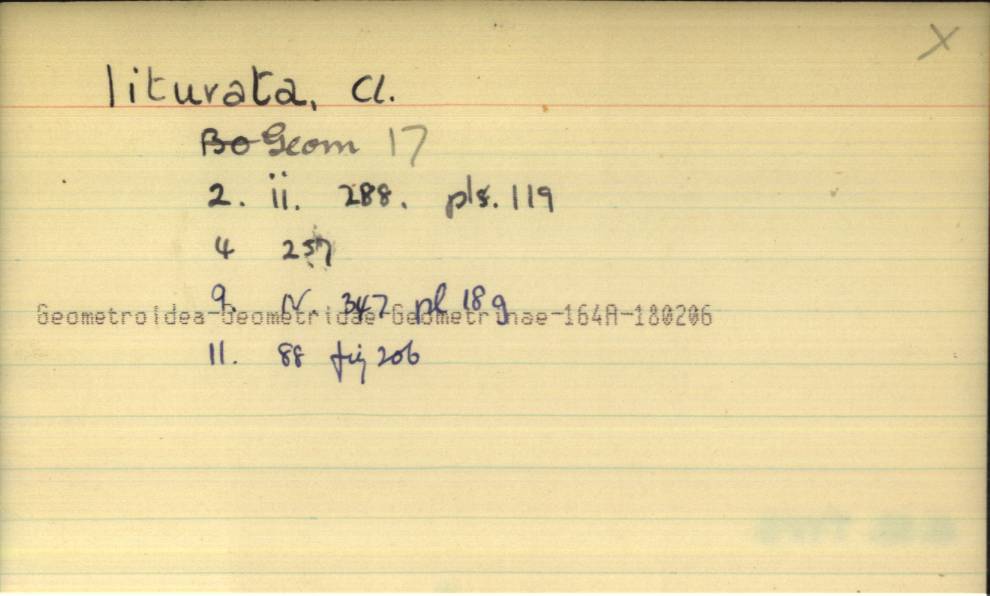 X
liturata, Cl.
Bo Geom 17
2. ii. 288. pls. 119
4 257
9. IV. 347 pl 18 g
Geometroidea-Geometridae-Geometrinae-164A-180206
11. 88 fig 206